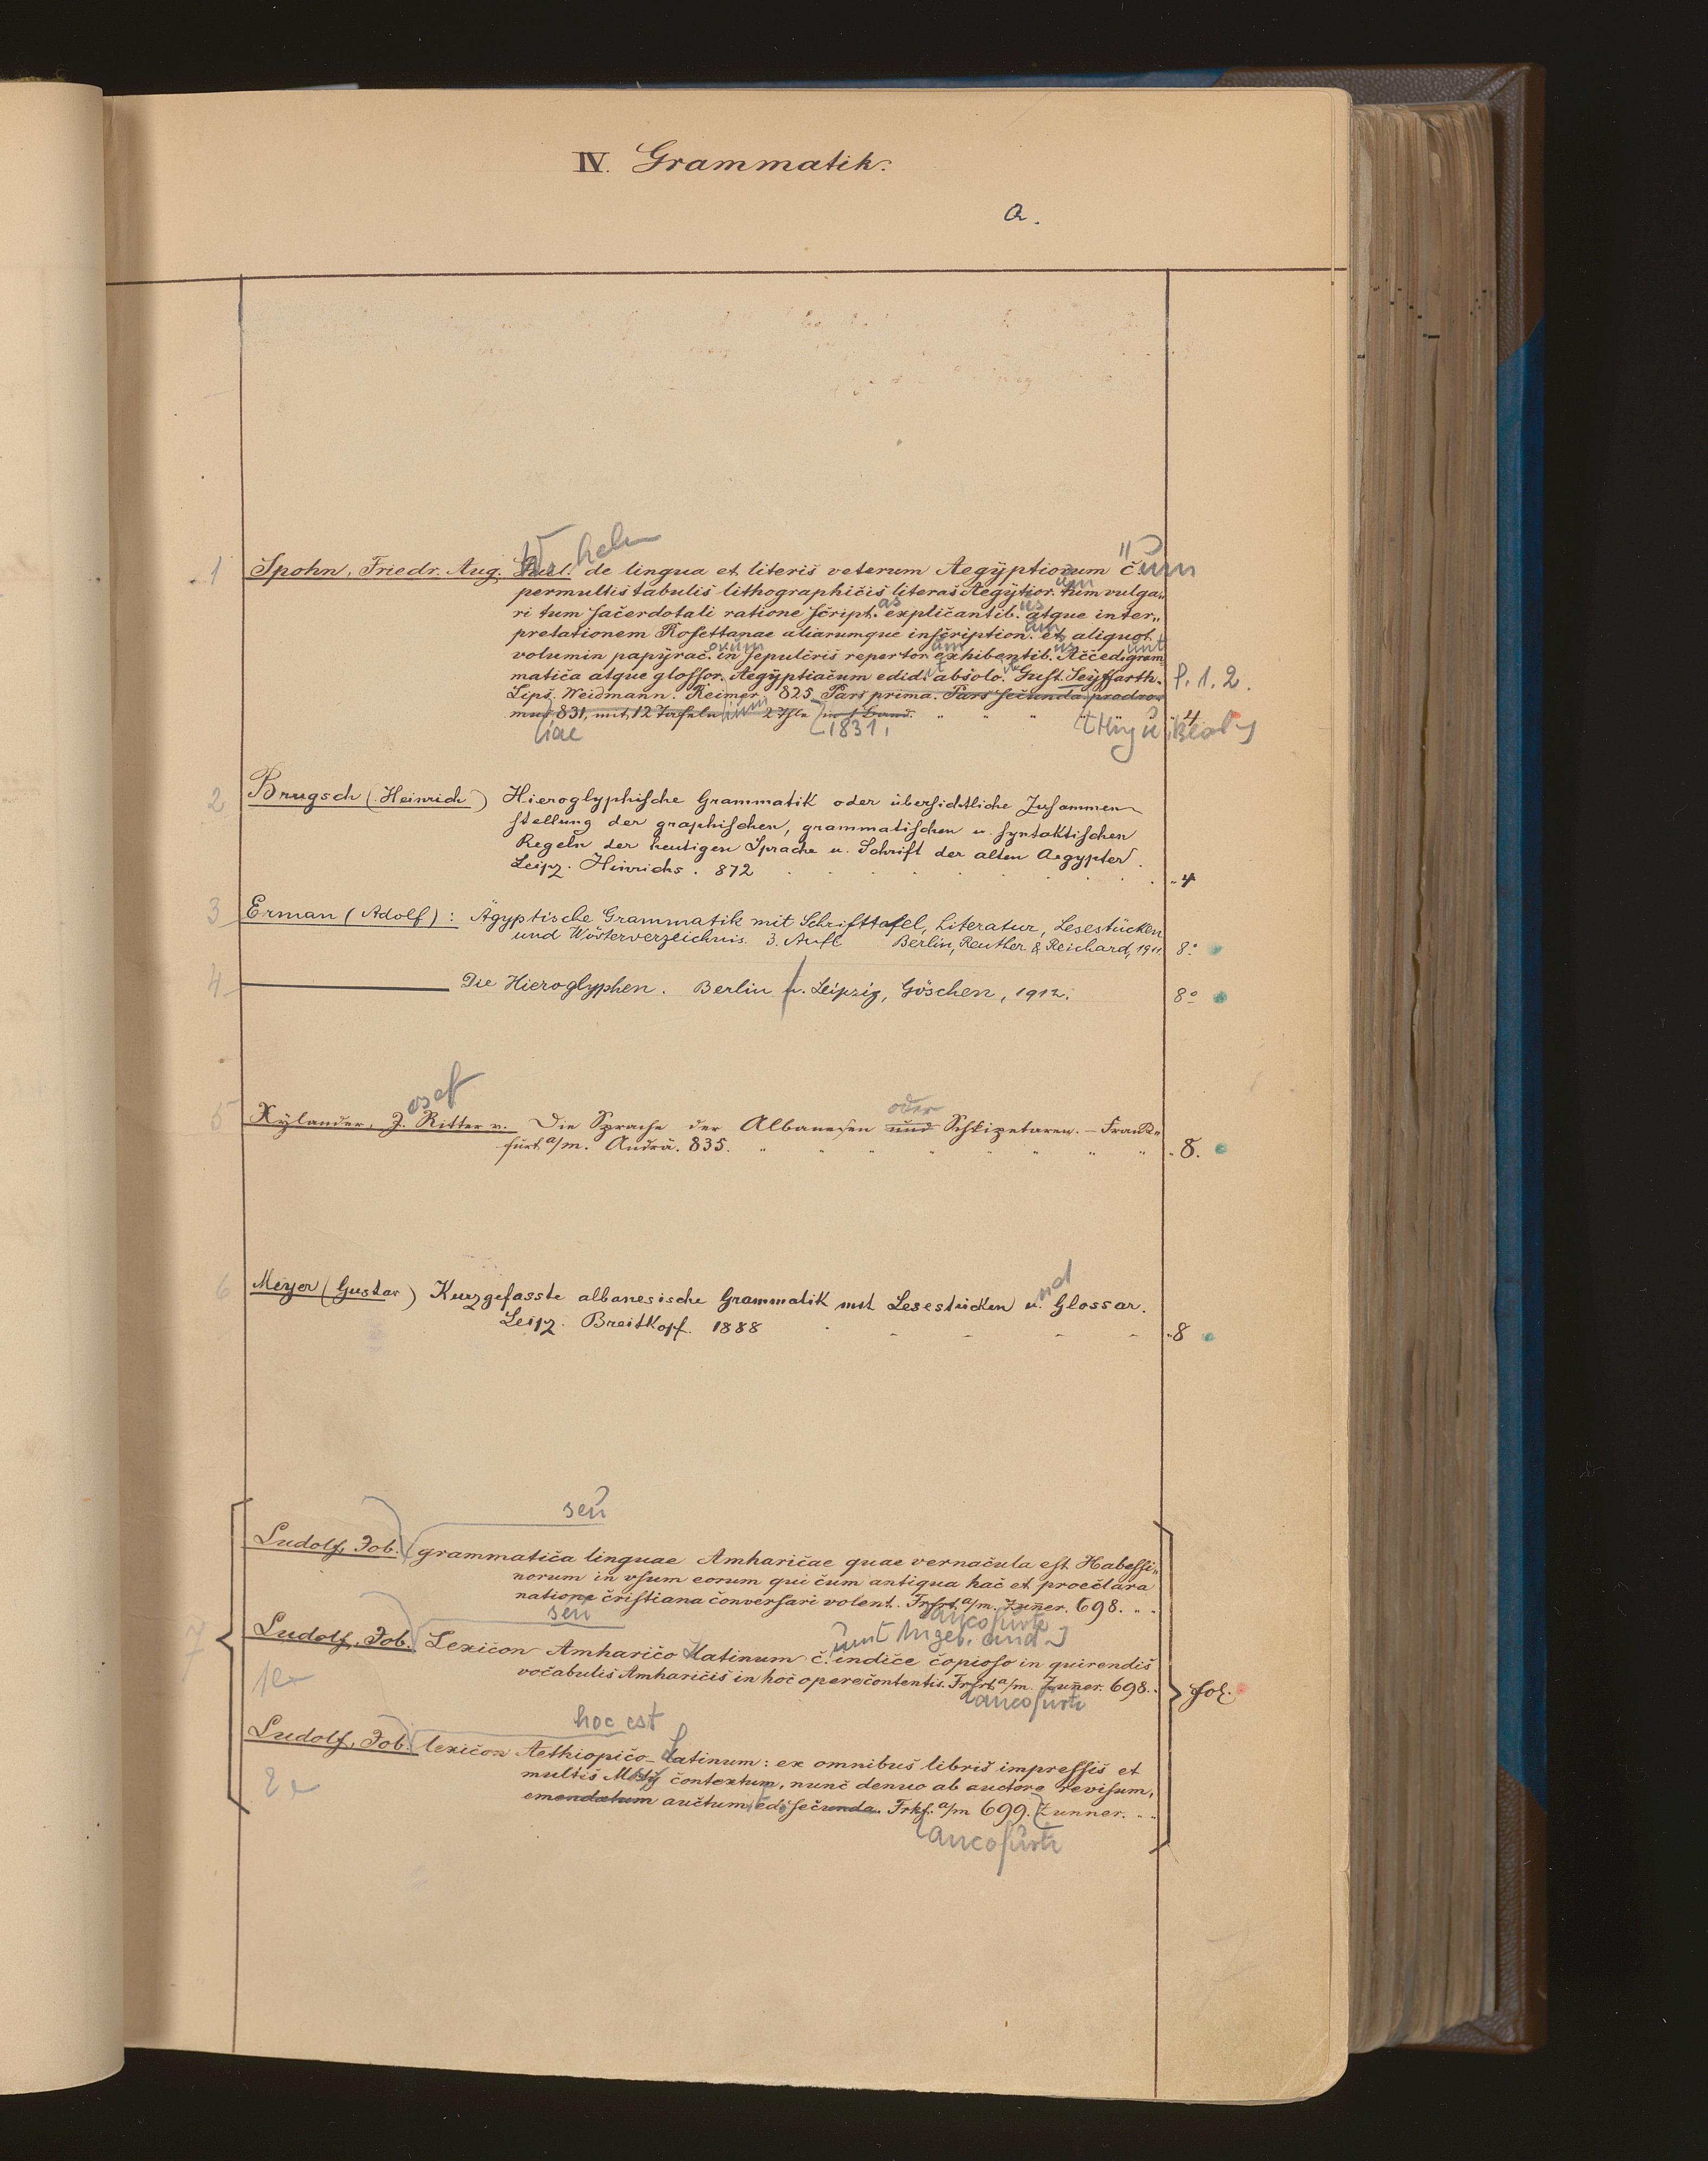 IV. Grammatik.
a.
helm
1 Spohn, Friedr. Aug. de lingua et literis veterum Aegÿptiorum cum
permultis tabulis lithographicis literas Aegÿtior. tum vulga„
ri tum sacerdotali ratione script. as explicantib. us atque inter„
pretationem Rosettanae aliarumque inscription. um et aliquot
volumin papÿrac. orum in sepulcris repertor um exhibentib. us Acced. unt gram
matica atque glossor. Aegÿptiacum edid. it absolv. Gust. Seÿffarth.
Lips. Weidmann. Reimer. 825 Pars prima. Pars secunda: prodro„ P. 1. 2.
mus 831, mit 12 Tafeln 2 Thle in 1 Band. " " " 4
liae 1831,
2 Brugsch (Heinrich) Hieroglyphische Grammatik oder übersichtliche Zusammen
stellung der graphischen, grammatischen u. syntaktischen
Regeln der heutigen Sprache u. Schrift der alten Aegypter.
Leipz. Hinrichs. 872 . . . . . . „4
3 Erman (Adolf): Ägyptische Grammatik mit Schrifttafel, Literatur, Lesestücken
und Wörterverzeichnis. 3. Aufl Berlin, Reuther & Reichard, 1911. 8°
4 — Die Hieroglyphen. Berlin u. Leipzig, Göschen, 1912. 8°
osef
5 Xÿlander, J. Ritter v. Die Sprache der Albanesen und oder Schkipetaren. – Frank„
furt a/m. Andrä. 835. " " " " " " " " 8.
6 Meyer (Gustav) Kurzgefasste albanesische Grammatik mit Lesestücken und Glossar.
Leipz. Breitkopf. 1888 . . . . . „8
seu
Ludolf, Job. grammatica linguae Amharicae quae vernacula est Habessi„
norum in vsum eorum qui cum antiqua hac et praeclara
natione cristiana conversari volent. Frfrt a/m. Zuner. 698. . .
seu ancofurti
7 Ludolf, Job. Lexicon Amharico Latinum c. indice copioso in quirendis
1 vocabulis Amharicis in hoc opere contentis. Frfrt a/m. Zuner. 698. . fol.
ancofurti
hoc est
Ludolf, Job. lexicon Aethiopico–Latinum: ex omnibus libris impressis et
2 multis contextum, nunc denuo ab auctore revisum,
emendatum auctum, ed. secunda. Frkf. a/m 699. Zunner. . .
ancofurti